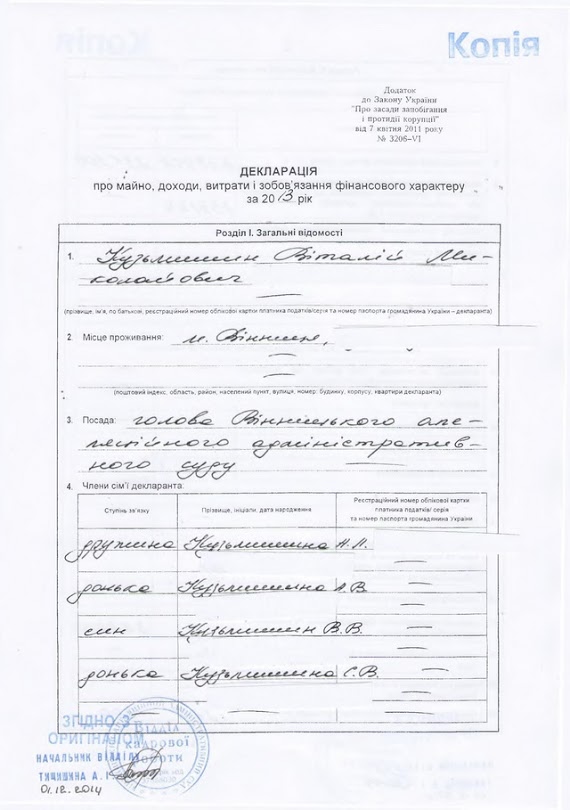 Копія
Додаток
до Закону України
"Про засади запобігання
і протидії корупції"
від 7 квітня 2011 року
№ 3206-VI
ДЕКЛАРАЦІЯ
про майно, доходи, витрати і зобов'язання фінансового характеру
за 2013 рік
Розділ I. Загальні відомості
1. Кузьмишин Віталій Ми-
колайович
(прізвище, ім'я, по батькові, реєстраційний номер облікової картки платника податків/серія та номер паспорта громадянина України – декларанта)
2. Місце проживання: м. Вінниця,
(поштовий індекс, область, район, населений пункт, вулиця, номер: будинку, корпусу, квартири декларанта)
3. Посада: голова Вінницького апе-
ляційного адміністратив-
ного суду
4. Члени сім'ї декларанта:
Ступінь зв'язку Прізвище, ініціали, дата народження Реєстраційний номер облікової картки
платника податків/ серія
та номер паспорта громадянина України
дружина Кузьмишина Н.Л.
донька Кузьмишина А.В.
син Кузьмишин В.В.
донька Кузьмишина С.В.
ЗГІДНО З
ОРИГІНАЛОМ
НАЧАЛЬНИК ВІДДІЛУ
ТИЦИШИНА А.
01.12.2014
Відділ
кадрової
роботи